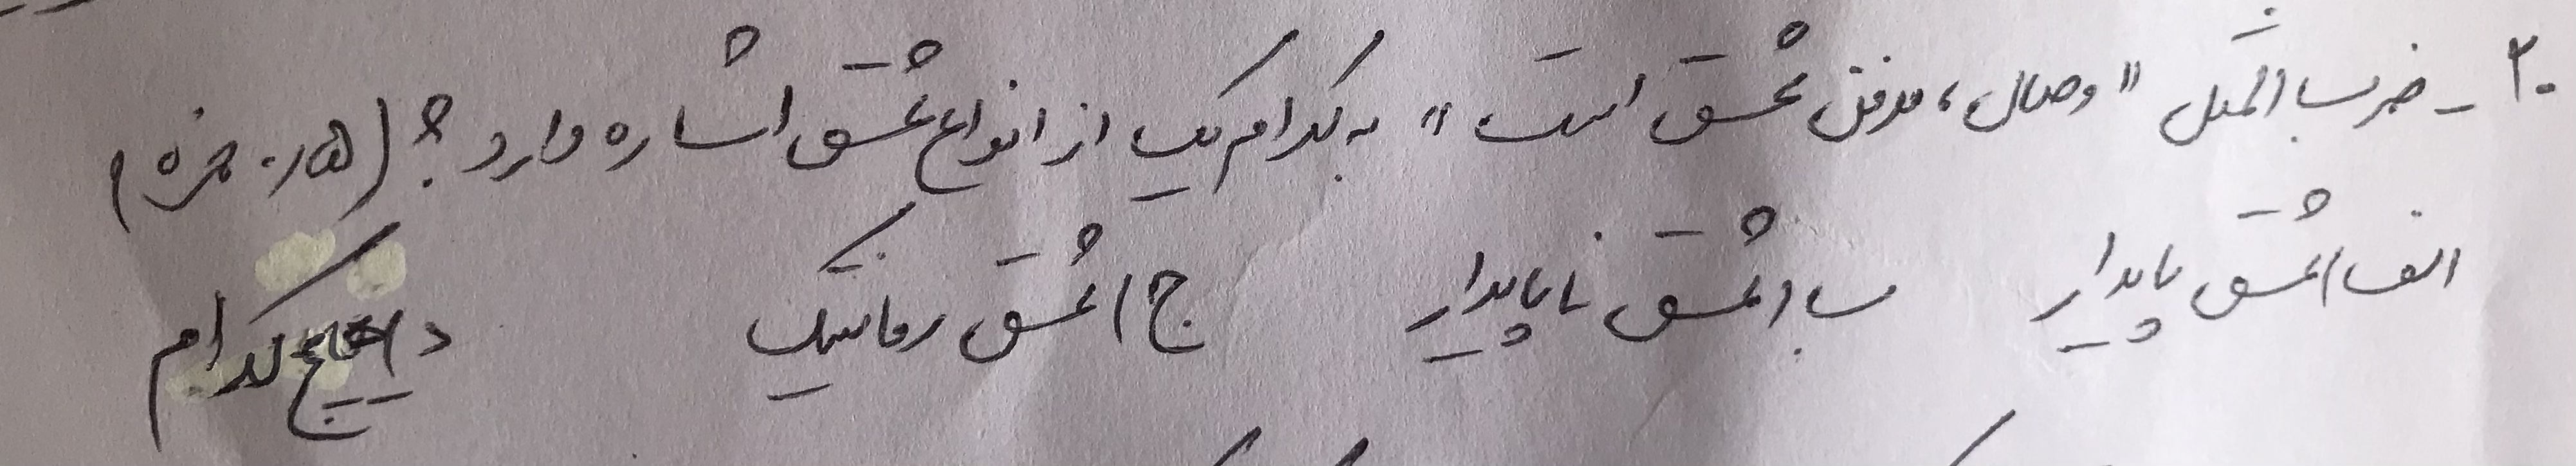 ۲۰ - ضرب المثل "وصال، مدفن عشق است" به کدام یک از انواع عشق اشاره دارد؟ (۰/۵ نمره)
الف) عشق پایدار ب) عشق ناپایدار ج) عشق رمانتیک د) هیچ کدام